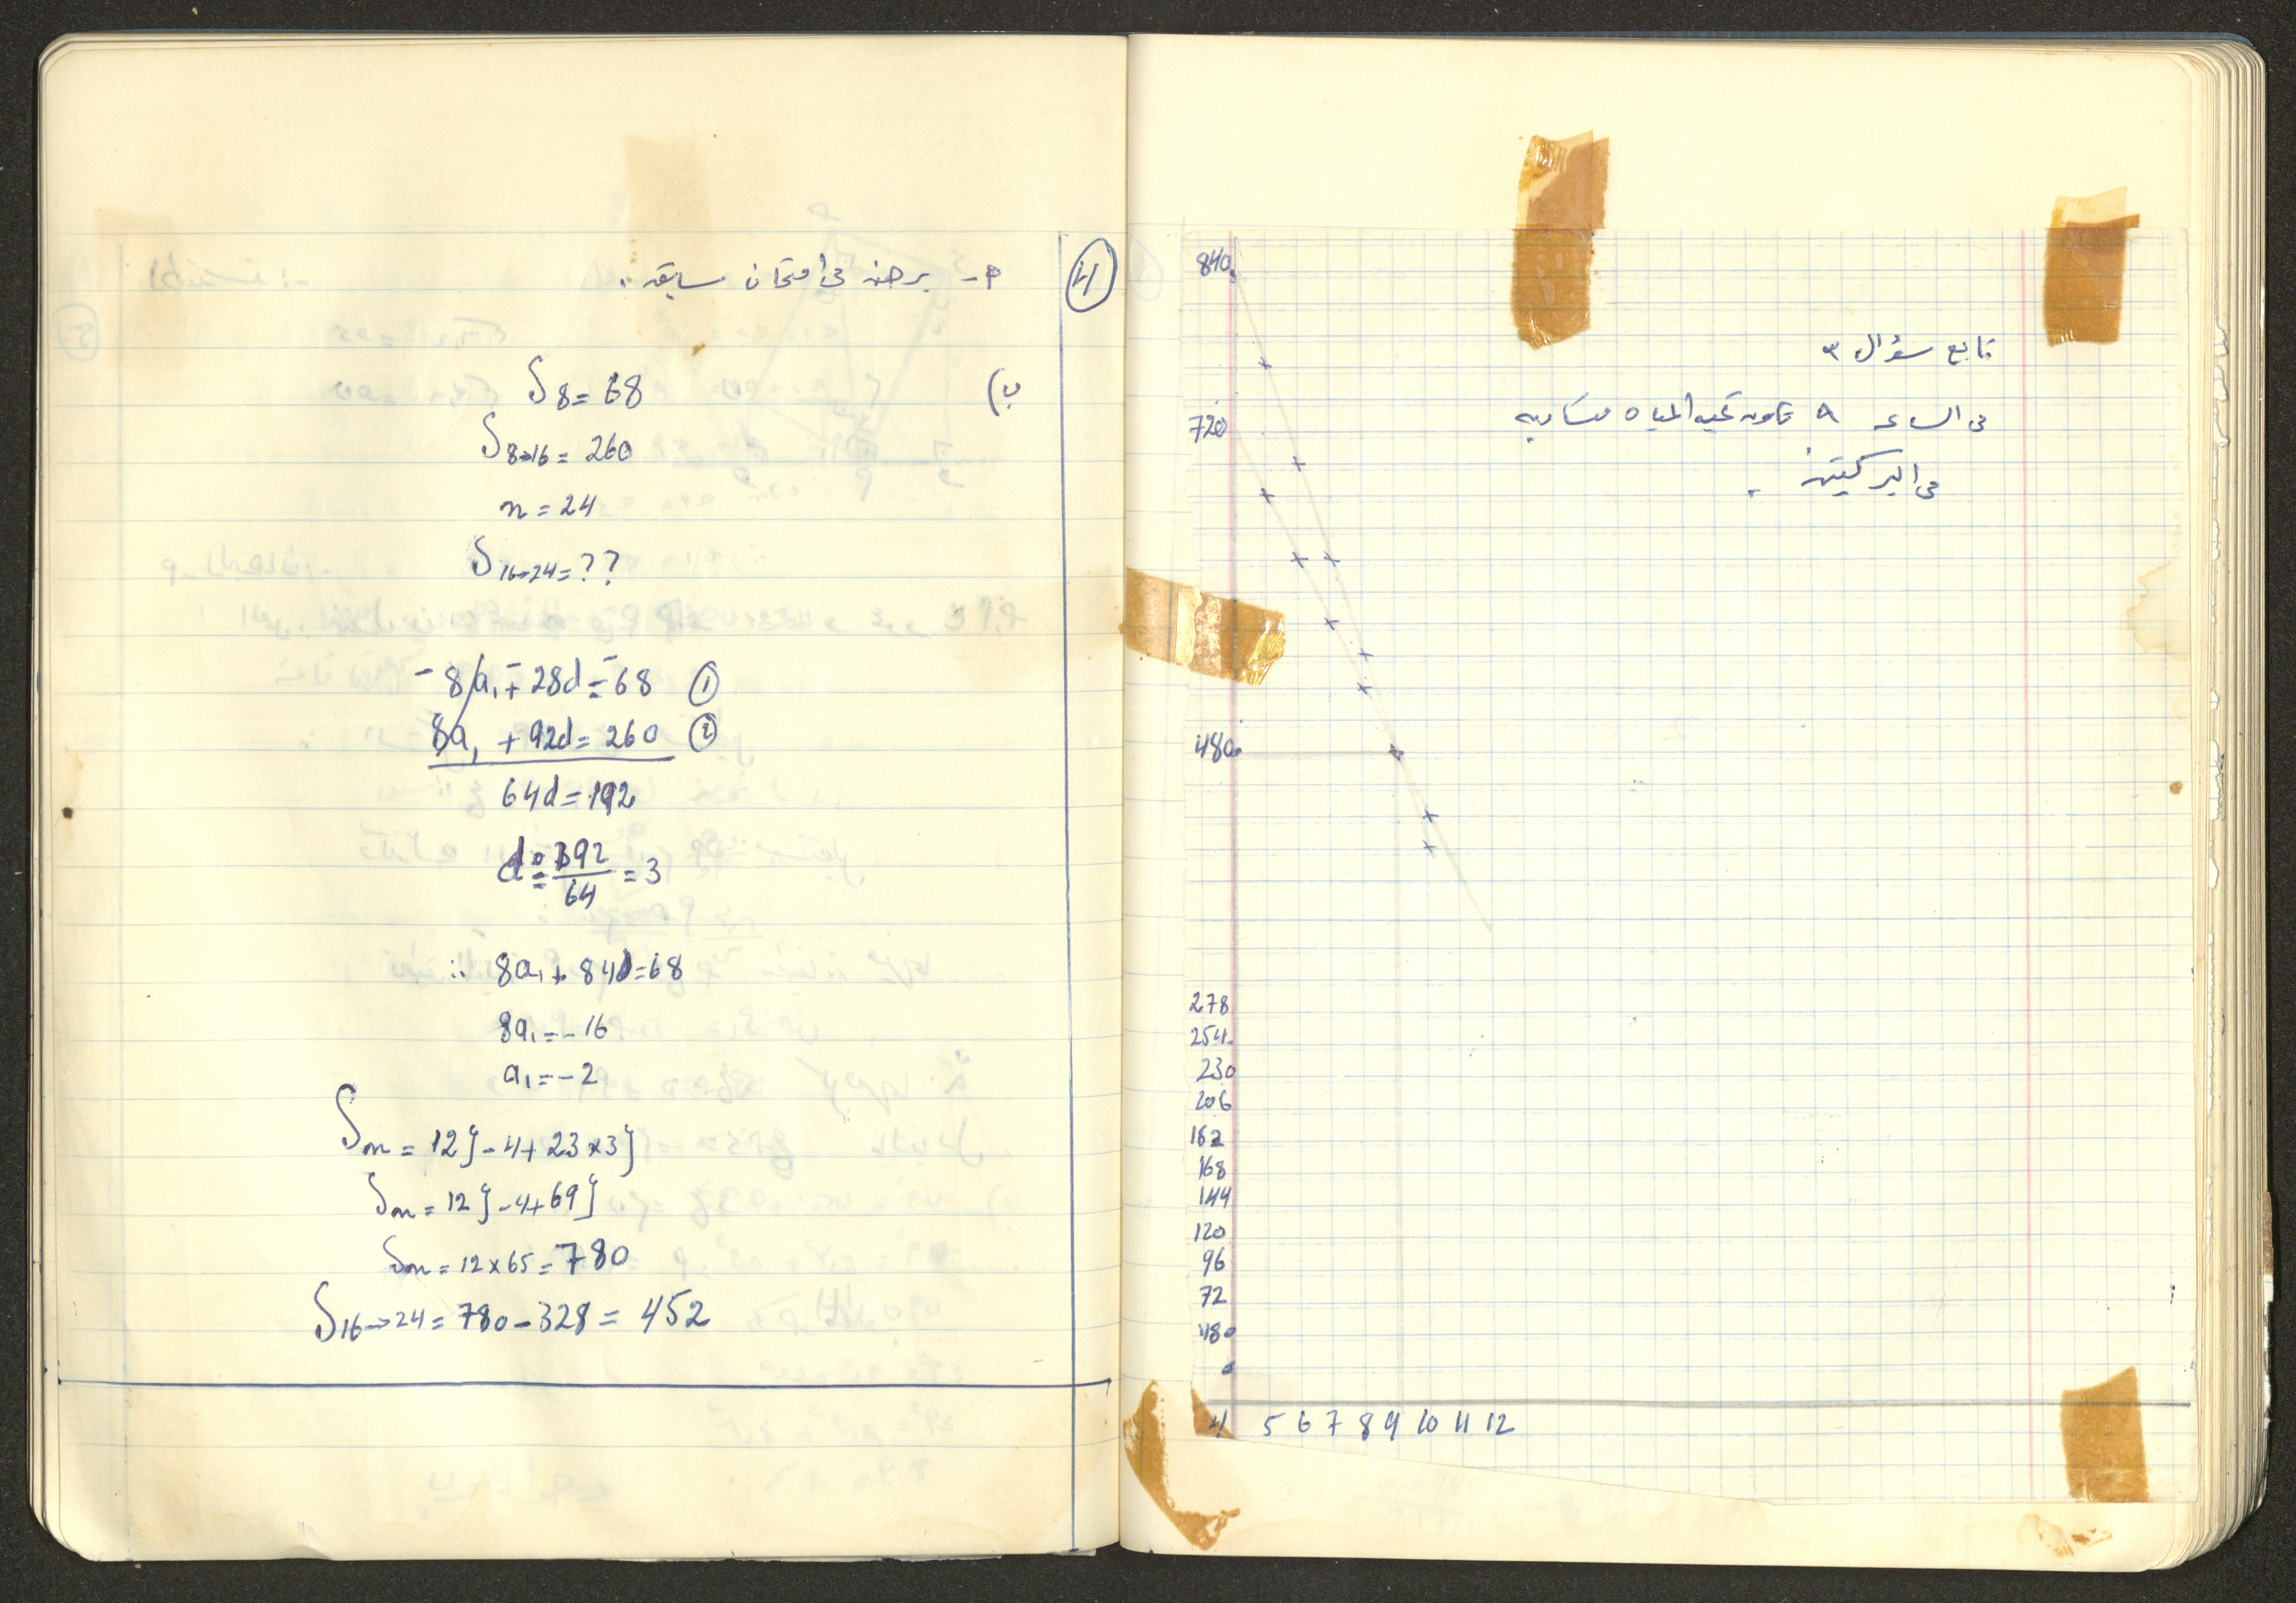 ④
م- برهنه في امتحان سابق.
ب)
S8 = 68
S8→16 = 260
n = 24
S16→24 = ??
- 8a1 + - 28d = - 68 ①
8a1 + 92d = 260 ②
64d = 192
d = 192/64 = 3
∴ 8a1 + 84 = 68
8a1 = -16
a1 = -2
Sn = 12{-4+23×3}
Sn = 12{-4+69}
Sn = 12×65 = 780
S16→24 = 780-328 = 452
تابع سؤال ٣
في الساعة ٩ تكون كمية المياه متساوية
في البركتين.
840
720
480
278
254
230
206
182
168
144
120
96
72
480
0
4 5 6 7 8 9 10 11 12